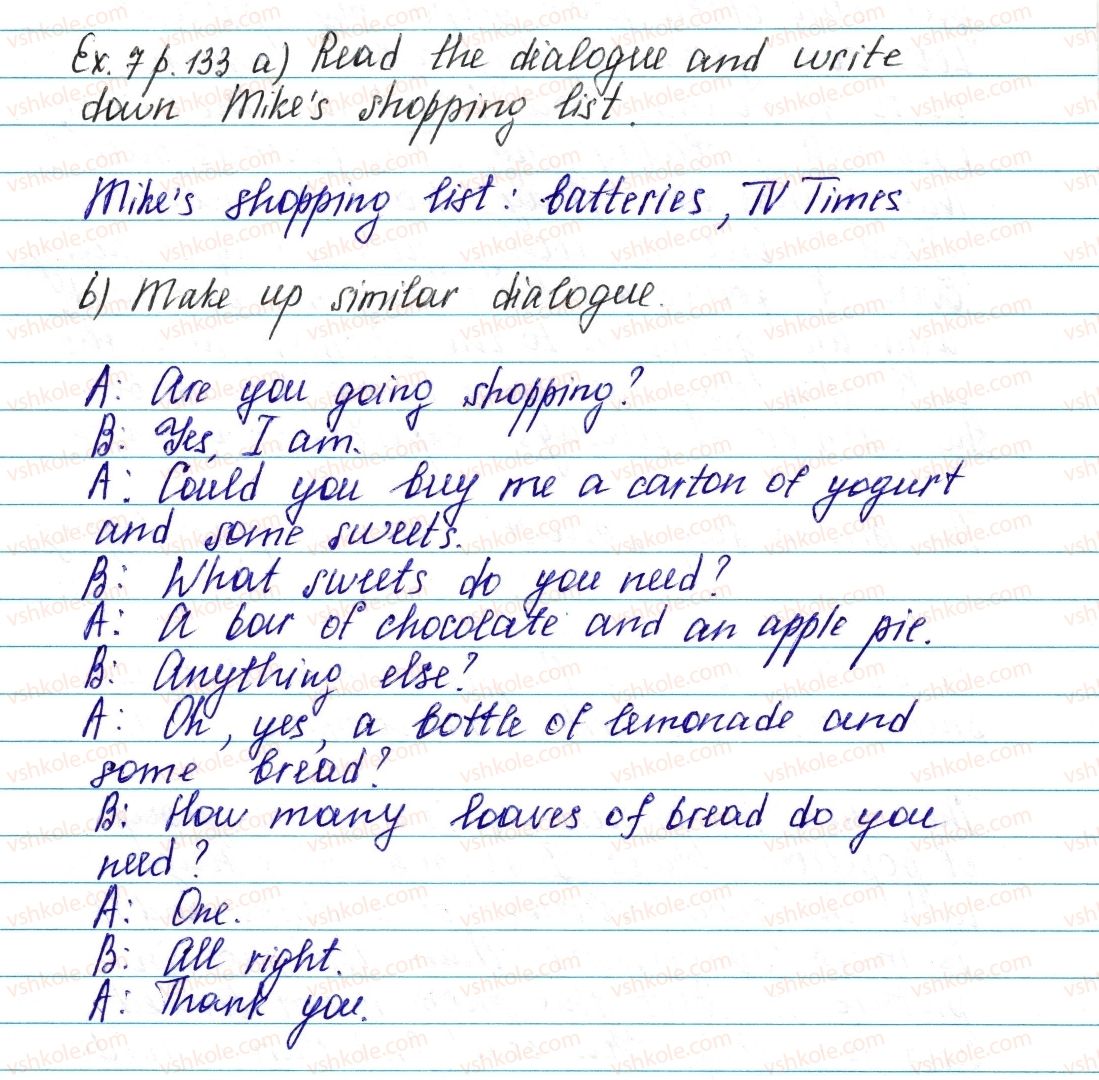 Ex. 7 p. 133 a) Read the dialogue and write
down Mike's shopping list.
Mike's shopping list: batteries, TV Times
b) Make up similar dialogue.
A: Are you going shopping?
B: Yes, I am.
A: Could you buy me a carton of yogurt
and some sweets.
B: What sweets do you need?
A: A bar of chocolate and an apple pie.
B: Anything else?
A: Oh, yes, a bottle of lemonade and
some bread?
B: How many loaves of bread do you
need?
A: One.
B: All right.
A: Thank you.
vshkole.com